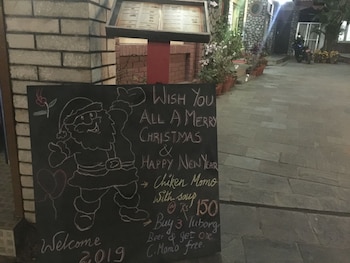 Wish You
All A Merry
Christmas
&
Happy New Year
Chiken Momo
with soup
@ Rs 150
Buy 3 tuborg
Beer & get one
C. Momo free
Welcome 2019